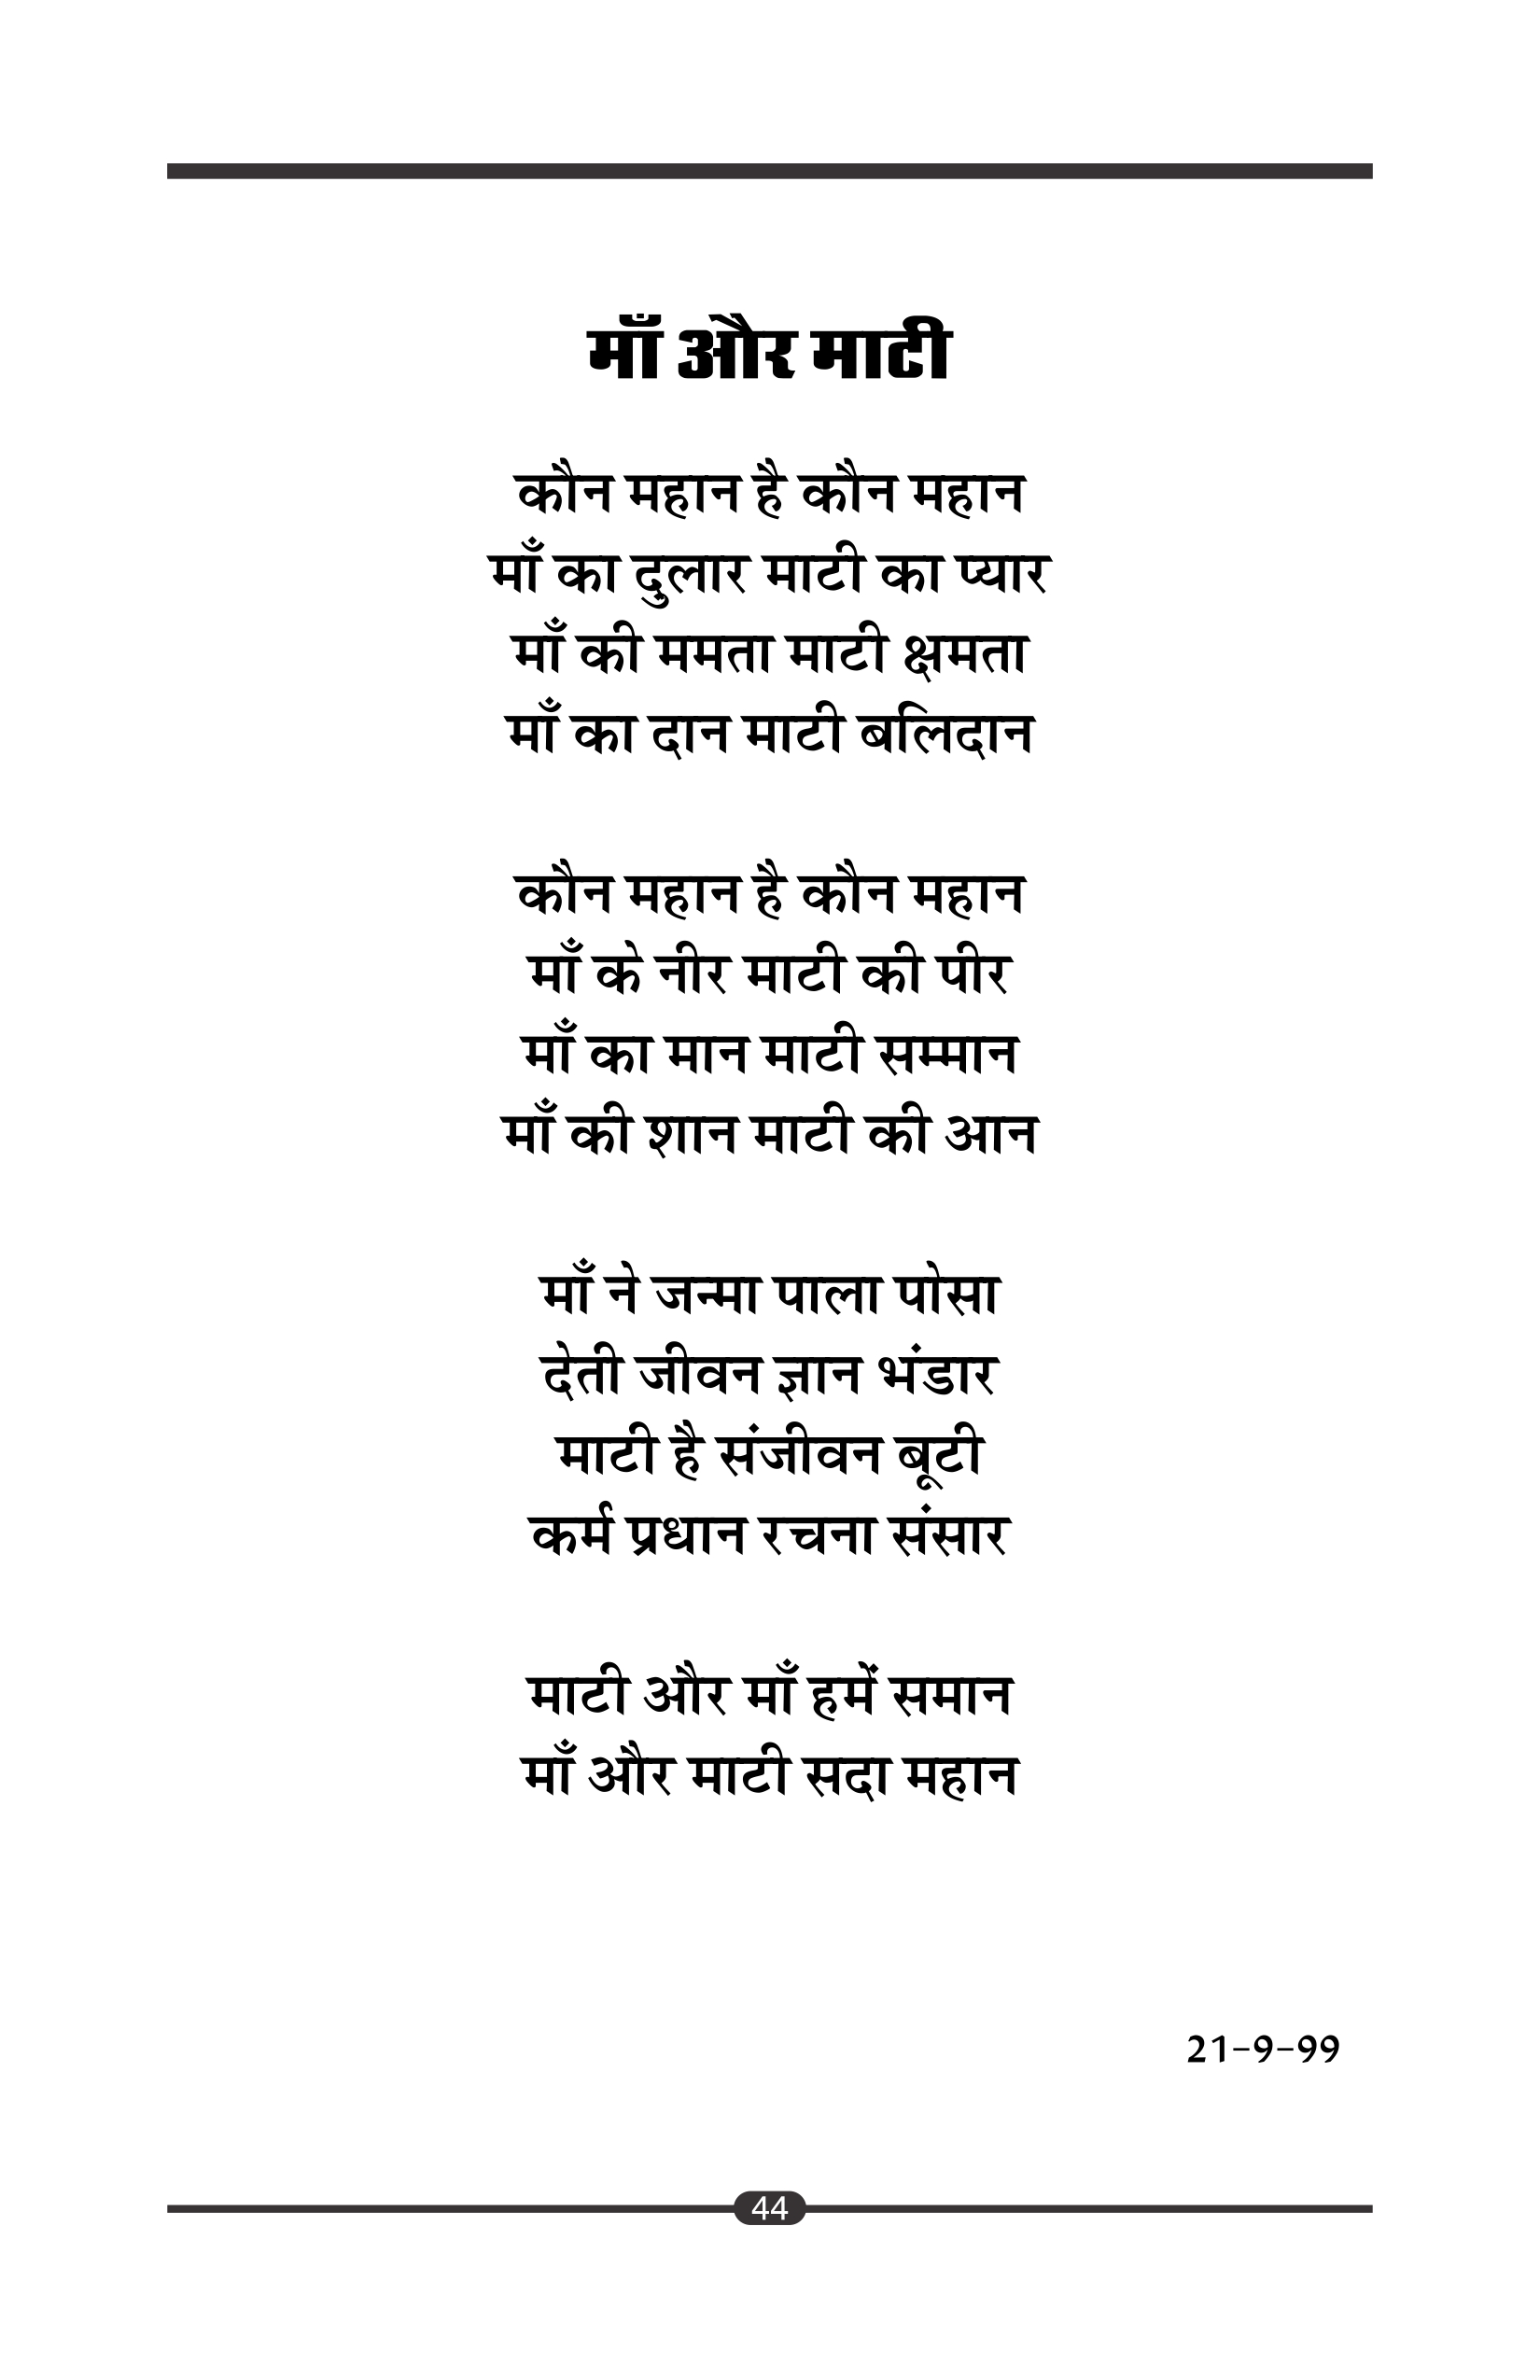 माँ और माटी
कौन महान है कौन महान
माँ का दुलार माटी का प्यार
माँ की ममता माटी क्षमता
माँ का दान माटी बलिदान
कौन महान है कौन महान
माँ के नीर माटी की पीर
माँ का मान माटी सम्मान
माँ की शान माटी की आन
माँ ने जन्मा पाला पोसा
देती जीवन ज्ञान भंडार
माटी है संजीवन बूटी
कर्म प्रधान रचना संसार
माटी और माँ हमें समान
माँ और माटी सदा महान
21-9-99
44